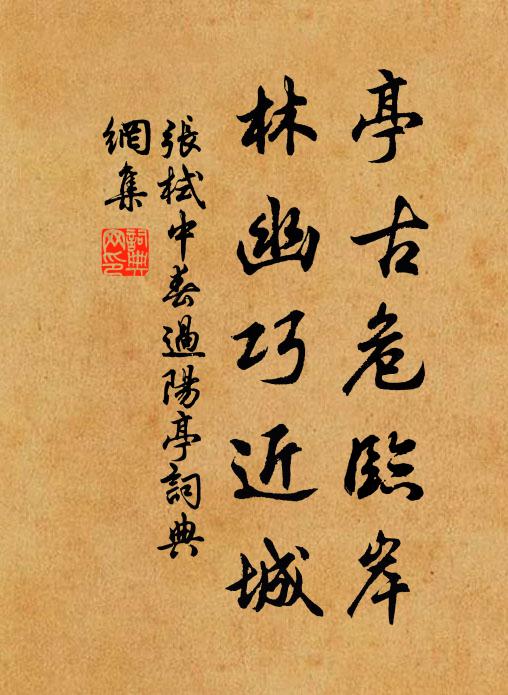 亭古危臨岸
林幽巧近城
張栻中春過陽亭詞典
網集
詞典
網印